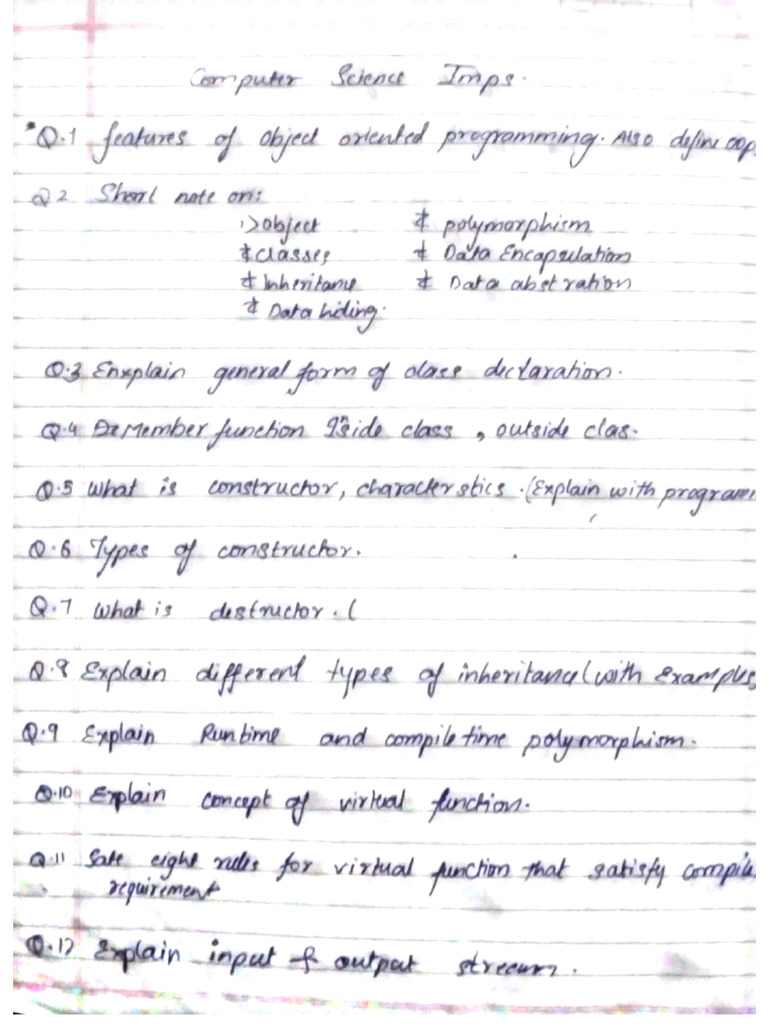 Computer Science Imps.
*Q.1 features of object oriented programming. Also define oop
Q2 Short note on:
1> object ‡ polymorphism
‡ classes ‡ Data Encapsulation
‡ Inheritance ‡ Data abstration
‡ Data hiding.
Q.3 Enxplain general form of class declaration.
Q.4 Member function Inside class , outside clas.
Q.5 What is constructor, characterstics. (Explain with program
Q.6 Types of constructor.
Q.7 What is destructor. (
Q.8 Explain different types of inheritance (with Examples
Q.9 Explain Runtime and compile time polymorphism.
Q.10 Explain concept of virtual function.
Q.11 Sate eight rules for virtual function that satisfy compile
requirement
Q.12 Explain input & output stream.